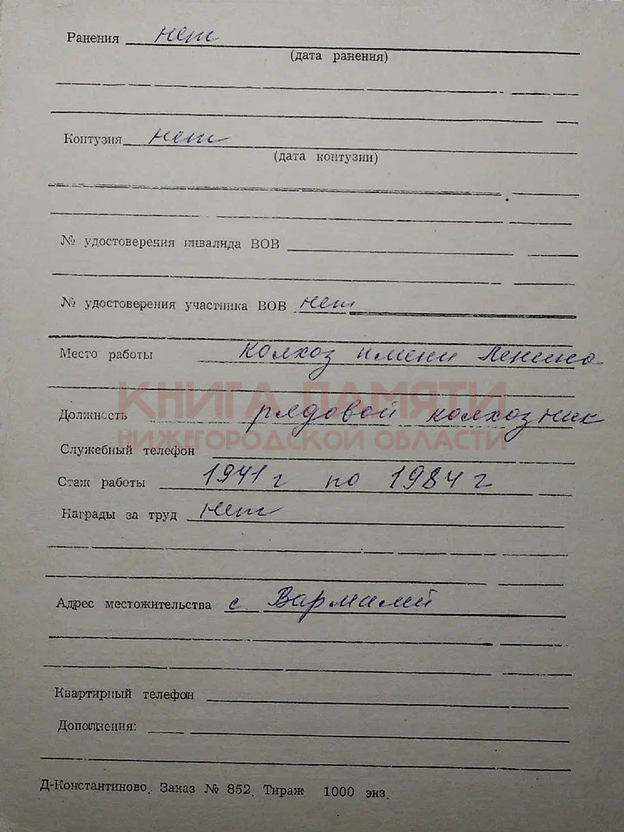 Ранения нет
(дата ранения)
Контузия нет
(дата контузии)
№ удостоверения инвалида ВОВ
№ удостоверения участника ВОВ нет
Место работы колхоз имени Ленина
КНИГА ПАМЯТИ
Должность рядовой колхозник
НИЖЕГОРОДСКОЙ ОБЛАСТИ
Служебный телефон
Стаж работы 1941 г по 1984 г
Награды за труд нет
Адрес местожительства с Вармалей
Квартирный телефон
Дополнения:
Д-Константиново. Заказ № 852. Тираж 1000 экз.